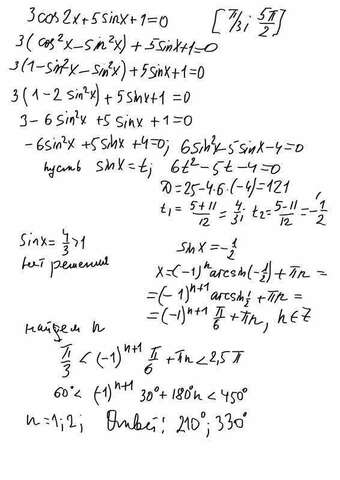 3cos2x+5sinx+1=0 [π/3; 5π/2]
3(cos²x-sin²x)+5sinx+1=0
3(1-sin²x-sin²x)+5sinx+1=0
3(1-2sin²x)+5sinx+1=0
3-6sin²x+5sinx+1=0
-6sin²x+5sinx+4=0; 6sin²x-5sinx-4=0
пусть sinx=t; 6t²-5t-4=0
D=25-4·6·(-4)=121
t₁=(5+11)/12=4/3; t₂=(5-11)/12=-1/2
sinx=4/3>1 sinx=-1/2
нет решений x=(-1)ⁿarcsin(-1/2)+πn=
=(-1)ⁿ⁺¹arcsin1/2+πn=
=(-1)ⁿ⁺¹π/6+πn, n∈Z
найдем n
π/3<(-1)ⁿ⁺¹π/6+πn<2,5π
60°<(-1)ⁿ⁺¹30°+180°n<450°
n=1; 2; Ответ: 210°; 330°